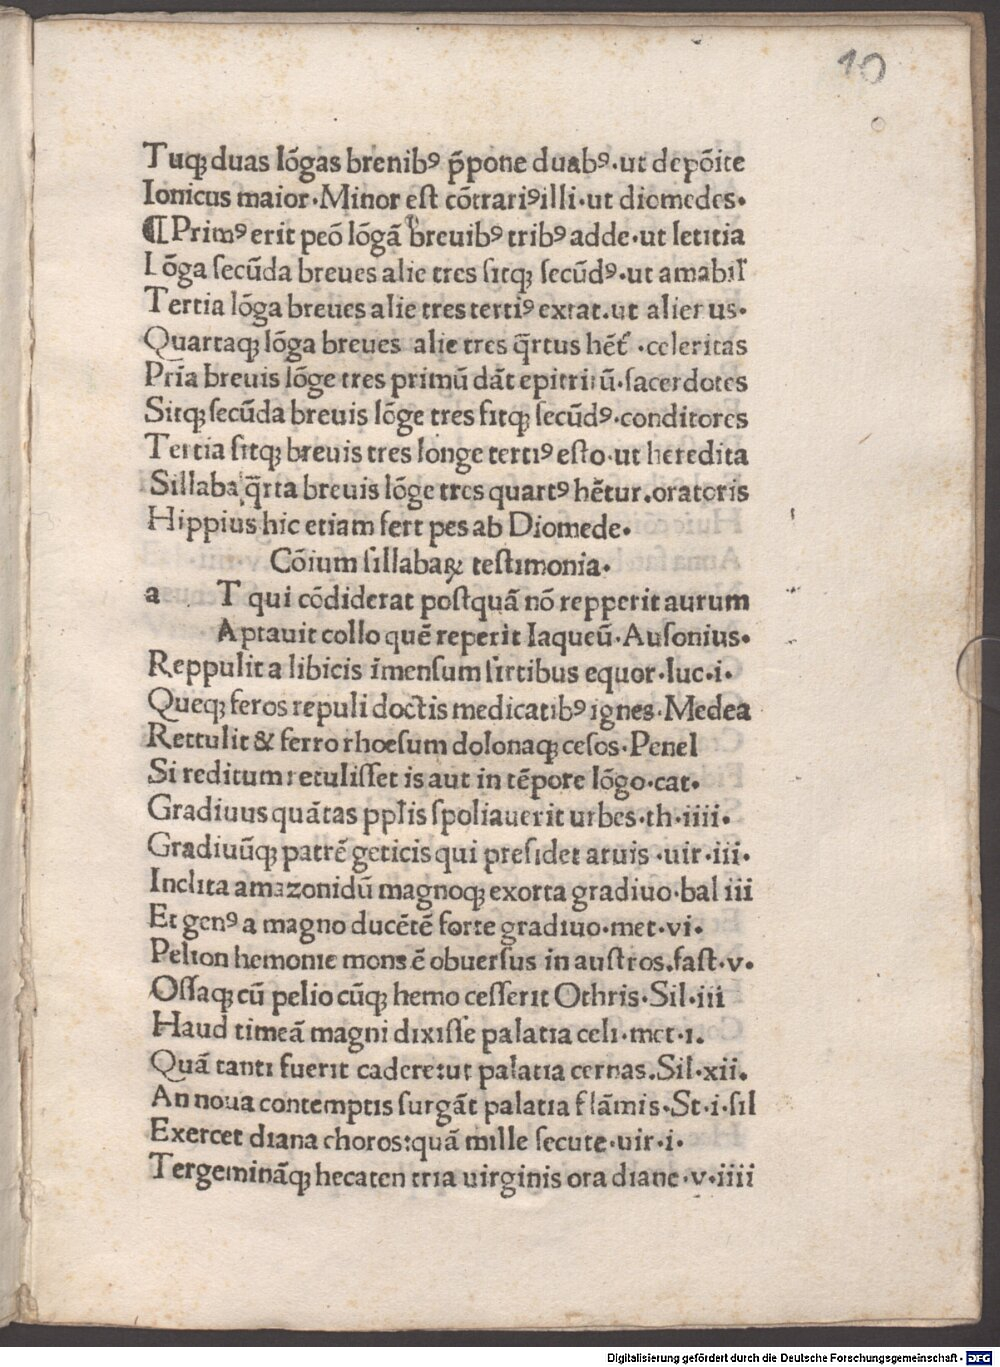 10
Tuqꝫ duas lõgas brenibꝰ p̄pone duabꝰ·ut depõite
Ionicus maior·Minor est cõtrariꝰ illi·ut diomedes·
¶ Primꝰ erit peõ lõgã breuibꝰ tribꝰ adde·ut letitia
Lõga secũda breues alie tres sitqꝫ secũdꝰ·ut amabil̃
Tertia lõga breues alie tres tertiꝰ extat.ut alier us·
Quartaqꝫ lõga breues alie tres q̃rtus hẽt ·celeritas
Pri̅a breuis lõge tres primũ dãt epitritũ·sacerdotes
Sitqꝫ secũda breuis lõge tres fitqꝫ secũdꝰ·conditores
Tertia sitqꝫ breuis tres longe tertiꝰ esto·ut heredita
Sillaba q̃rta breuis lõge tres quartꝰ hẽtur.oratoris
Hippius hic etiam fert pes ab Diomede·
Cõium sillabaꝝ testimonia·
a T qui cõdiderat postquã nõ repperit aurum
Aptauit collo quẽ reperit Iaqueũ·Ausonius·
Reppulit a libicis ĩmensum sirtibus equor·luc·i·
Queqꝫ feros repuli doctis medicatibꝰ ignes·Medea
Rettulit & ferro rhoesum dolonaqꝫ cesos·Penel
Si reditum retulisset is aut in tẽpore lõgo·cat·
Gradiuus quãtas ppl̃is spoliauerit urbes·th·iiii·
Gradiuũqꝫ patrẽ geticis qui presidet aruis ·uir·iii·
Inclita amazonidũ magnoqꝫ exorta gradiuo·bal iii
Et genꝰ a magno ducẽtẽ forte gradiuo·met·vi·
Pelion hemonie mons ẽ obuersus in austros.fast·v·
Ossaqꝫ cũ pelio cũqꝫ hemo cesserit Othris·Sil·iii
Haud timeã magni dixisse palatia celi·met·i.
Quã tanti fuerit cadere:ut palatia cernas.Sil·xii.
An noua contemptis surgãt palatia flãmis·St·i·sil
Exercet diana choros:quã mille secute·uir·i·
Tergeminãqꝫ hecaten tria uirginis ora diane·v·iiii
Digitalisierung gefördert durch die Deutsche Forschungsgemeinschaft · DFG